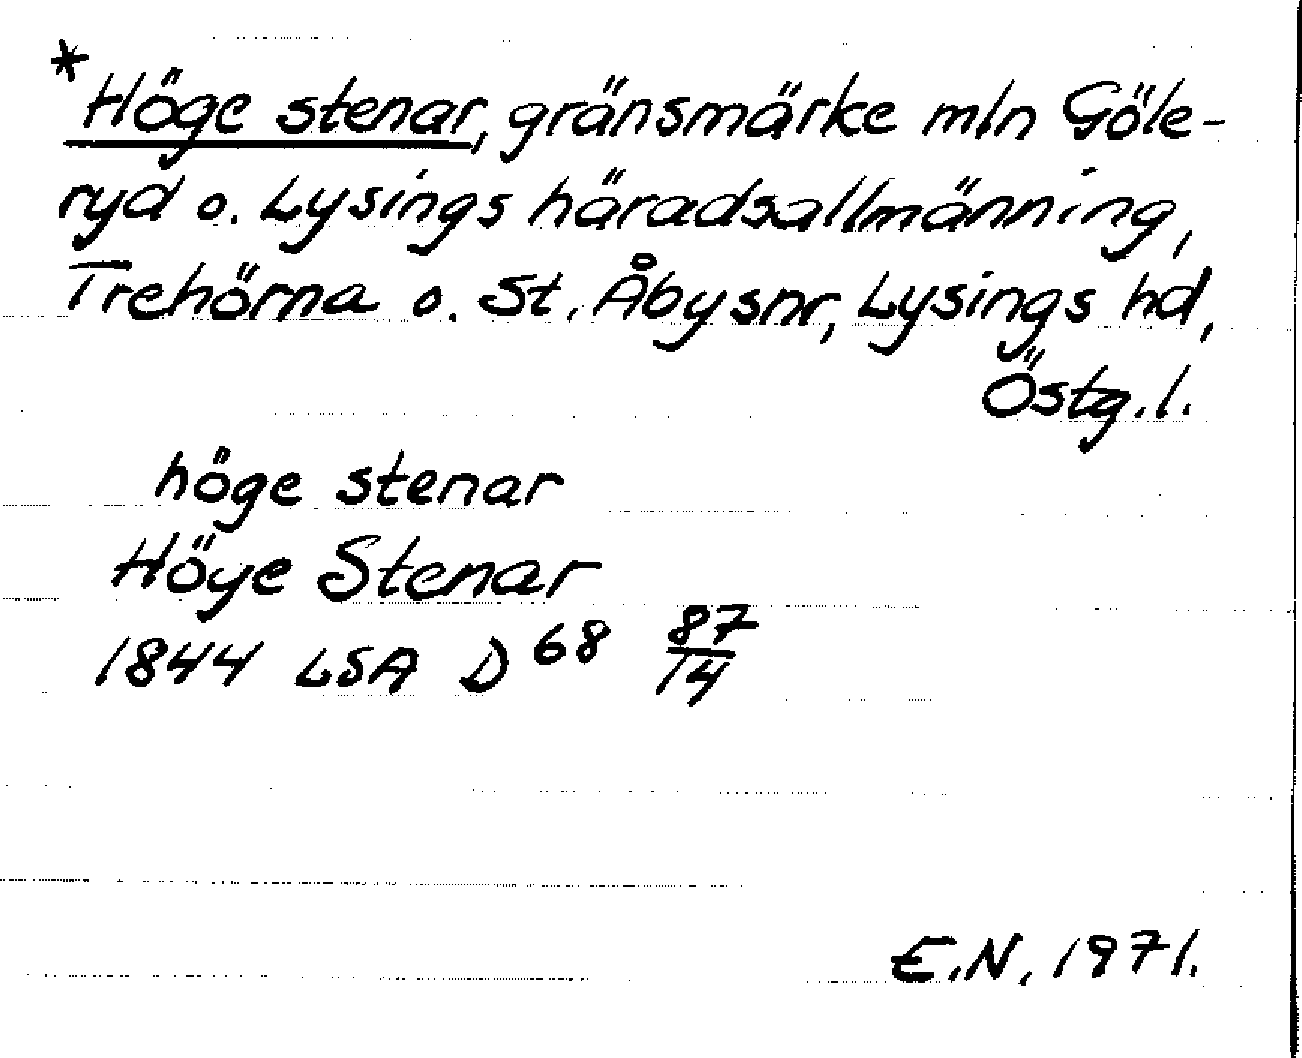 *Höge stenar, gränsmärke mln Göle-
ryd o. Lysings häradsallmänning,
Trehörna o. St. Åby snr, Lysings hd,
Östg.l.
höge stenar
Höye Stenar
1844 LSA D 68 87/14
E.N. 1971.